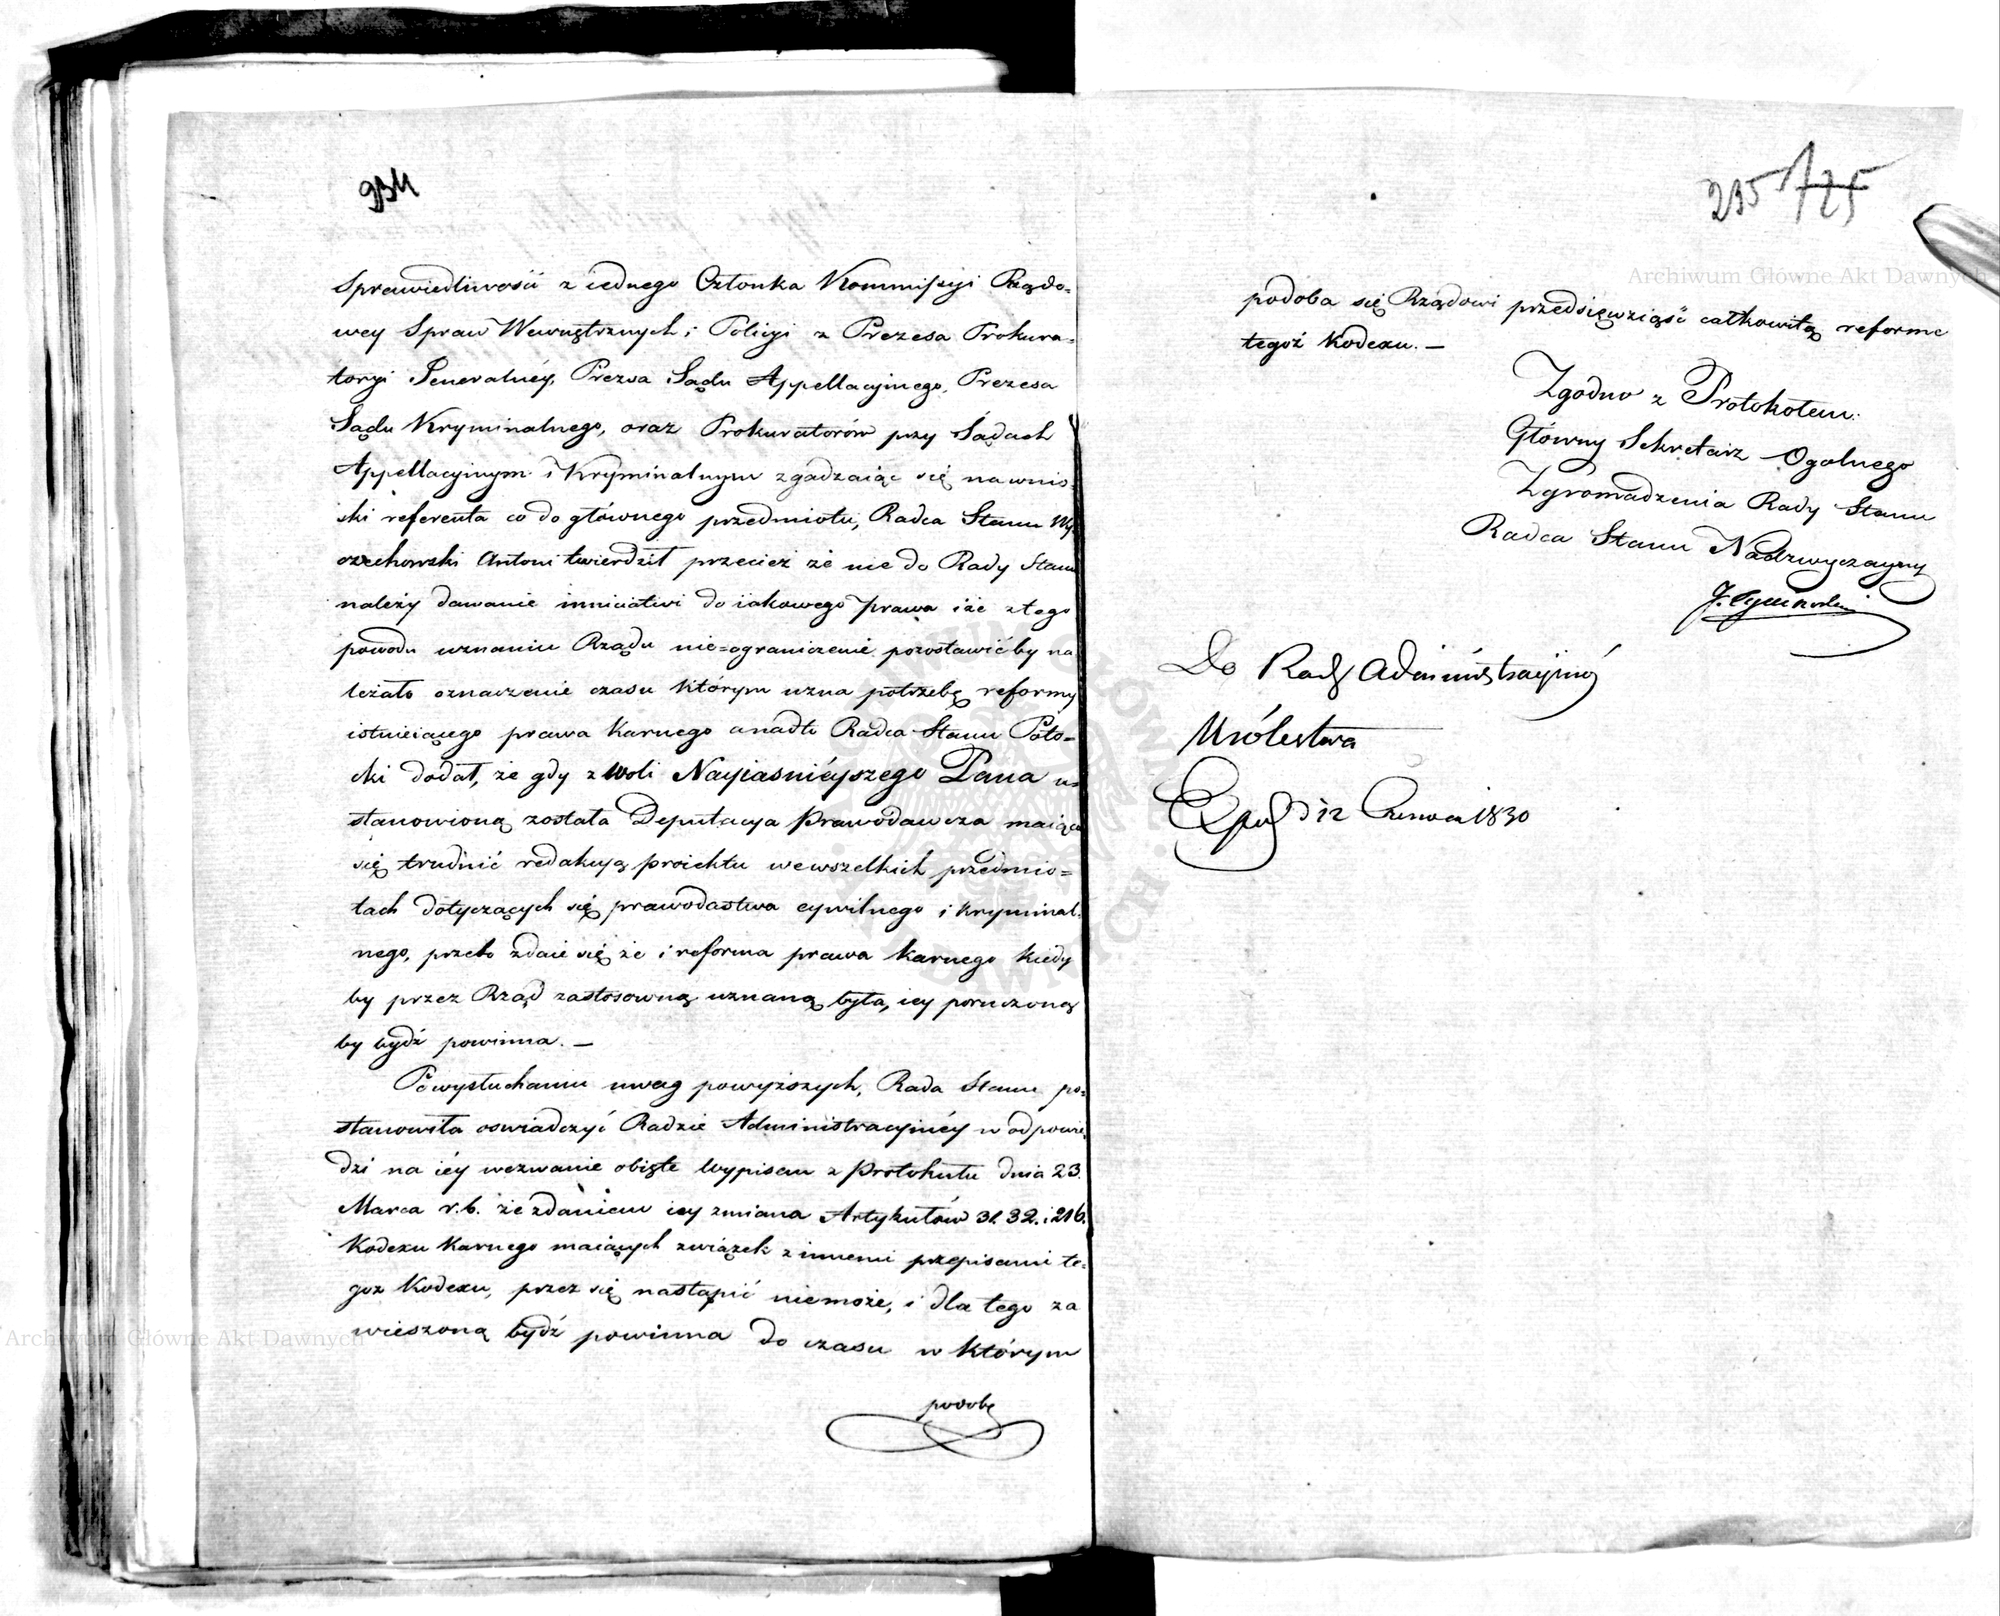 934
Sprawiedliwości z iednego Członka Kommissyi Rządo=
wey Spraw Wewnętrznych i Policyi z Prezesa Prokura=
toryi Jeneralnéy, Prezesa Sądu Appellacyinego, Prezesa
Sądu Kryminalnego, oraz Prokuratorów przy Sądach
Appellacyinym i Kryminalnym zgadzaiąc się na wnio=
ski referenta co do głównego przedmiotu, Radca Stanu Wy
czechowski Antoni twierdził przecież że nie do Rady Stanu
należy dawanie inniciatiwi do iakowego prawa i że z tego
powodu uznaniu Rządu nie=ograniczenie pozostawićby na
leżało oznaczenie czasu którym uzna potrzebę reformy
istnieiącego prawa Karnego a nadto Radca Stanu Poto=
cki dodał, że gdy z woli Nayiaśniéyszego Pana u=
stanowioną została Deputacya Prawodawcza maiąca
się trudnić redakcyą proiektu we wszelkich przedmio=
tach dotyczących się prawodastwa cywilnego i kryminal=
nego, przeto zdaie się że i reforma prawa karnego kiedy
by przez Rząd zastosowną uznaną była, iey poruczoną
by bydź powinna. —
Po wysłuchaniu uwag powyższych, Rada Stanu po=
stanowiła oswiadczyć Radzie Administracyinéy w odpowie
dzi na iéy wezwanie obięte Wypisem z Protokułu dnia 23.
Marca r.b. że zdaniem iey zmiana Artykułów 31. 32. i 216.
Kodexu Karnego maiących związek z innemi przepisami te=
goz Kodexu, przez się nastąpić niemoże, i dla tego za
wieszoną bydź powinna do czasu w którym
podoba
235 725
podoba się Rządowi przedsięwziąść całkowitą reforme
tegoż Kodexu. —
Zgodno z Protokołem:
Główny Sekretarz Ogolnego
Zgromadzenia Rady Stanu
Radca Stanu Nadzwyczayny
Do Rady Administracyinéy
Królestwa
Exped d 12 Czerwca 1830
Archiwum Główne Akt Dawnych
Archiwum Główne Akt Dawnych